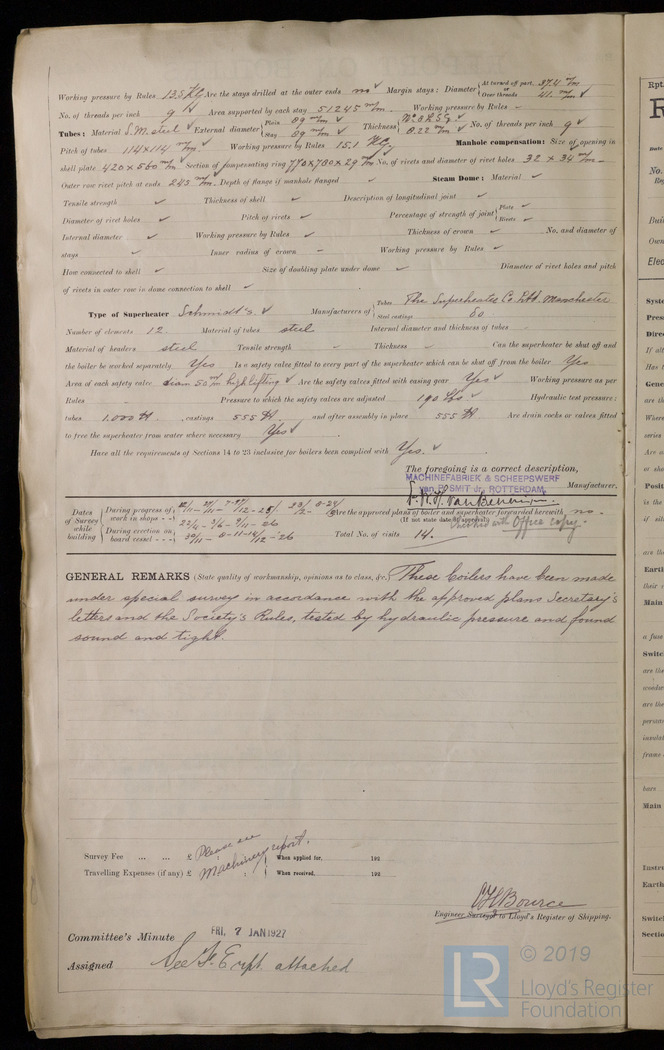 Working pressure by Rules 13.5 KG Are the stays drilled at the outer ends no ✓ Margin stays: Diameter { At turned off part, 37.4 m/m or Over threads 41. m/m ✓
No. of threads per inch 9 ✓ Area supported by each stay 51245 m/m Working pressure by Rules -
Tubes: Material S.M. steel ✓ External diameter { Plain 89 m/m ✓ Stay 89 m/m ✓ Thickness { ✓ No. of threads per inch 9 ✓
Pitch of tubes 114 x 114 m/m ✓ Working pressure by Rules 15.1 KG Manhole compensation: Size of opening in
shell plate 420 x 560 m/m Section of compensating ring 770 x 780 x 29 m/m No. of rivets and diameter of rivet holes 32 x 34 m/m -
Outer row rivet pitch at ends 243 m/m. Depth of flange if manhole flanged ✓ Steam Dome: Material ✓
Tensile strength ✓ Thickness of shell ✓ Description of longitudinal joint ✓
Diameter of rivet holes ✓ Pitch of rivets ✓ Percentage of strength of joint { Plate ✓ Rivets ✓
Internal diameter ✓ Working pressure by Rules ✓ Thickness of crown ✓ No. and diameter of
stays ✓ Inner radius of crown - Working pressure by Rules ✓
How connected to shell ✓ Size of doubling plate under dome ✓ Diameter of rivet holes and pitch
of rivets in outer row in dome connection to shell ✓
Type of Superheater Schmidt's ✓ Manufacturers of { Tubes The Superheater Co Ltd. Manchester Steel castings do.
Number of elements 12 Material of tubes steel Internal diameter and thickness of tubes
Material of headers steel Tensile strength ✓ Thickness ✓ Can the superheater be shut off and
the boiler be worked separately Yes Is a safety valve fitted to every part of the superheater which can be shut off from the boiler Yes
Area of each safety valve diam 50 m/m high lifting ✓ Are the safety valves fitted with easing gear Yes ✓ Working pressure as per
Rules - Pressure to which the safety valves are adjusted 190 lbs ✓ Hydraulic test pressure:
tubes 1.000 lb , castings 555 lb and after assembly in place 555 lb Are drain cocks or valves fitted
to free the superheater from water where necessary Yes ✓
Have all the requirements of Sections 14 to 23 inclusive for boilers been complied with Yes. ✓
The foregoing is a correct description,
MACHINEFABRIEK & SCHEEPSWERF
van P. SMIT Jr. ROTTERDAM Manufacturer.
Dates of Survey while building { During progress of work in shops - - Are the approved plans of boiler and superheater forwarded herewith no -
(If not state date of approval) Checked with Office copy.
During erection on board vessel - - - 30/11 - 8-11-14/12 - 26 Total No. of visits 14.
GENERAL REMARKS (State quality of workmanship, opinions as to class, &c. These boilers have been made
under special survey in accordance with the approved plans Secretary's
letters and the Society's Rules, tested by hydraulic pressure and found
sound and tight.
Survey Fee ... ... £ Please see When applied for, 192
Travelling Expenses (if any) £ Machinery report. When received, 192
Engineer Surveyor to Lloyd's Register of Shipping.
Committee's Minute FRI. 7 JAN 1927
Assigned See F.E. rpt. attached
© 2019
LR Lloyd's Register
Foundation